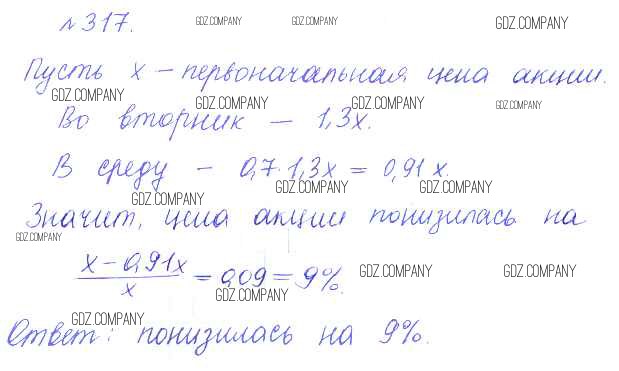 №317. GDZ.COMPANY GDZ.COMPANY GDZ.COMPANY
Пусть x – первоначальная цена акции.
GDZ.COMPANY GDZ.COMPANY GDZ.COMPANY GDZ.COMPANY
Во вторник – 1,3x.
В среду – 0,7·1,3x = 0,91x.
GDZ.COMPANY GDZ.COMPANY GDZ.COMPANY
Значит, цена акции понизилась на
GDZ.COMPANY
x – 0,91x / x = 0,09 = 9%.
GDZ.COMPANY GDZ.COMPANY GDZ.COMPANY
GDZ.COMPANY
Ответ: понизилась на 9%.